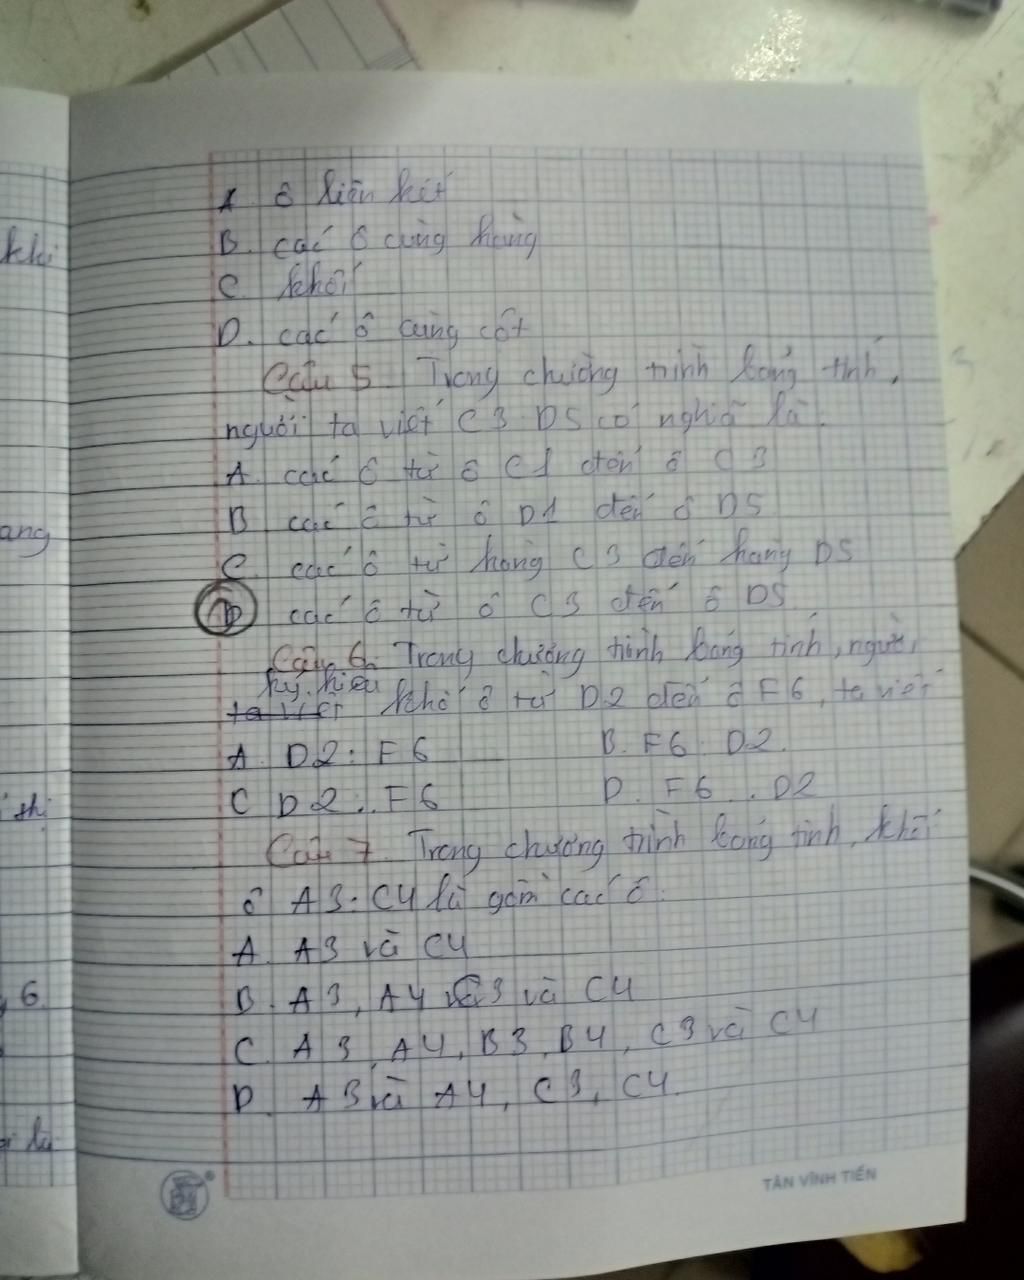 khi
ang
thị
6.
A ô liên kết
B. các ô cùng hàng
C. khối
D. các ô cùng cột
Câu 5. Trong chương trình bảng tính,
người ta viết C3 D5 có nghĩa là.
A. các ô từ ô C1 đến ô C3
B các ô từ ô D1 đến ô D5
C. các ô từ hàng C3 đến hàng D5
D các ô từ ô C3 đến ô D5
Câu 6. Trong chương trình bảng tính, người,
ký hiệu
ta viết khối ô từ D2 đến ô F6, ta viết
A. D2: F6 B. F6: D2.
C D2..F6 D. F6..D2
Câu 7. Trong chương trình bảng tính, khối
ô A3:C4 là gồm các ô.
A. A3 và C4
B. A3, A4 C3 và C4
C. A3, A4, B3, B4, C3 và C4
D. A3 và A4, C3, C4.
TÂN VĨNH TIẾN